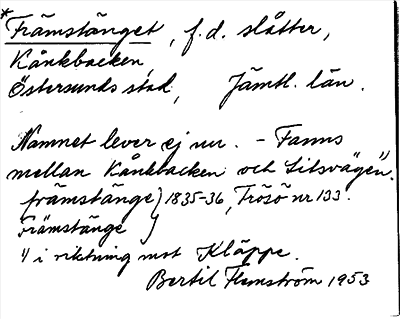 *Främstänget, f.d. slåtter,
Kånkbacken
Östersunds stad, Jämtl. län.
Namnet lever ej nu. - Fanns
mellan Kånkbacken och Litsvägen 1).
främstänge) 1835-36, Frösö nr 133.
Främstänge )
1) i riktning mot Kläppe.
Bertil Flemström 1953